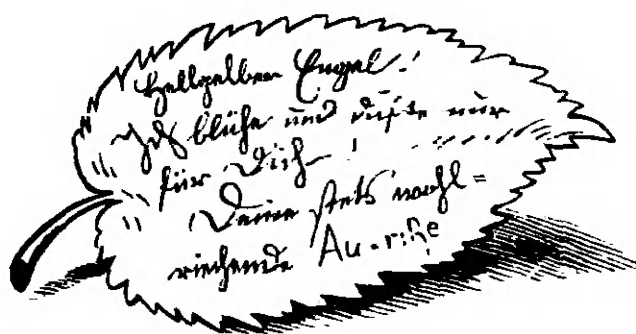 Hellgelber Engel!
Ich blühe und dufte nur
für Dich – !
Deine stets wohl=
riechende